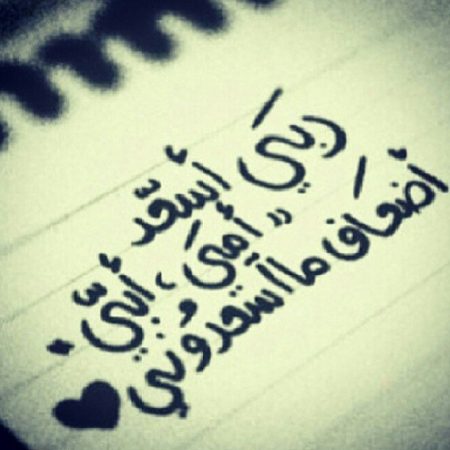 ربي أسعد
"أمي، أبي.
أضعاف ما أسعدوني ♥